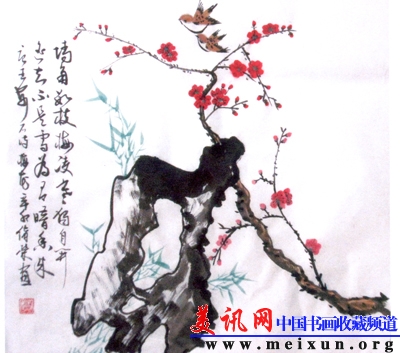 墙角数枝梅凌寒独自开
遥知不是雪为有暗香来
王安石诗梅花
美讯网 中国书画收藏频道
www.meixun.org